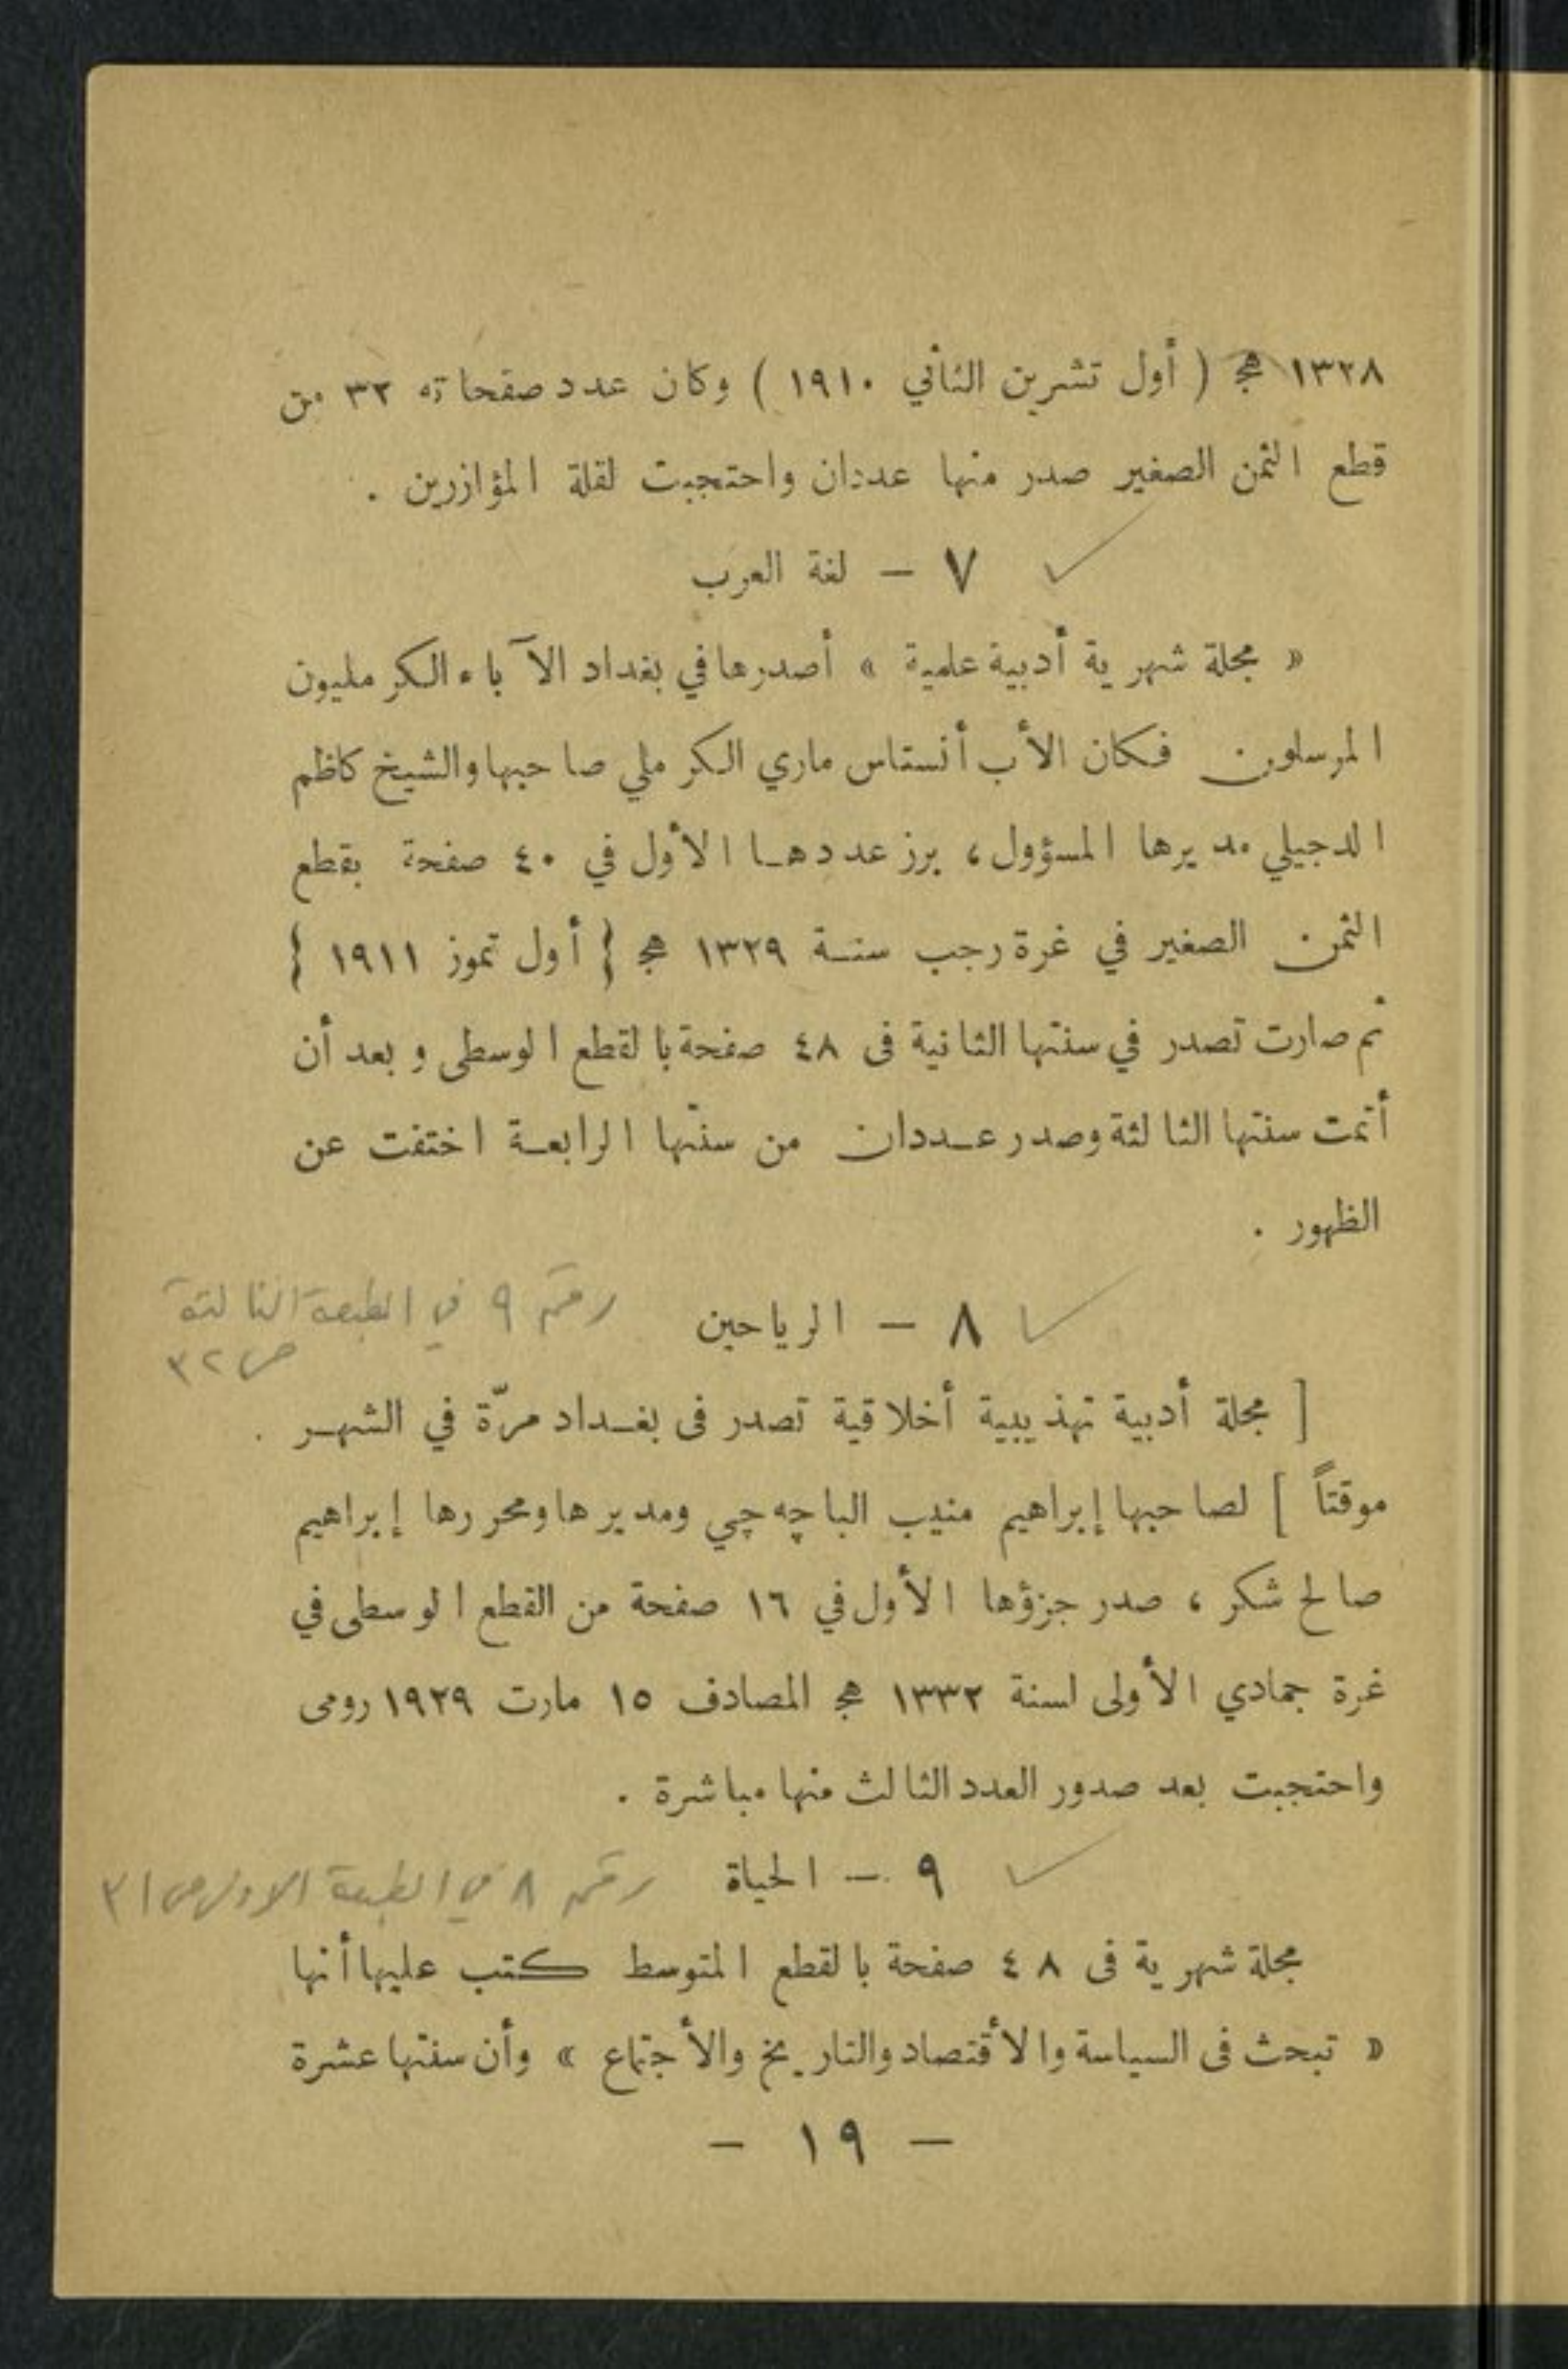 ١٣٢٨ هج ( أول تشرين الثاني ١٩١٠ ) وكان عدد صفحاته ٣٢ من
قطع الثمن الصغير صدر منها عددان واحتجبت لقلة المؤازرين .
٧ — لغة العرب
« مجلة شهرية أدبية علمية » أصدرها في بغداد الآباء الكرمليون
المرسلون فكان الأب أنستاس ماري الكرملي صاحبها والشيخ كاظم
الدجيلي مديرها المسؤول ، برز عددها الأول في ٤٠ صفحة بقطع
الثمن الصغير في غرة رجب سنة ١٣٢٩ هج { أول تموز ١٩١١ }
ثم صارت تصدر في سنتها الثانية فى ٤٨ صفحة بالقطع الوسطى وبعد أن
أتمت سنتها الثالثة وصدر عددان من سنتها الرابعة اختفت عن
الظهور .
٨ — الرياحين رقم ٩ في الطبعة الثالثة
ص ٣٢
[ مجلة أدبية تهذيبية أخلاقية تصدر فى بغداد مرّة في الشهر .
موقتاً ] لصاحبها إبراهيم منيب الباچه چي ومديرها ومحررها إبراهيم
صالح شكر ، صدر جزؤها الأول في ١٦ صفحة من القطع الوسطى في
غرة جمادي الأولى لسنة ١٣٣٢ هج المصادف ١٥ مارت ١٩٢٩ رومى
واحتجبت بعد صدور العدد الثالث منها مباشرة .
٩ — الحياة رقم ٨ في الطبعة الاولى ص ٣١
مجلة شهرية فى ٤٨ صفحة بالقطع المتوسط كتب عليها أنها
« تبحث فى السياسة والأقتصاد والتاريخ والأجتماع » وأن سنتها عشرة
— ١٩ —